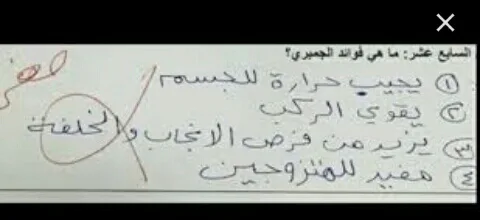 السابع عشر: ما هي فوائد الجمبري؟
① يجيب حرارة للجسم
② يقوي الركب
③ يزيد من فرص الانجاب والخلفة
④ مفيد للمتزوجين
صفر